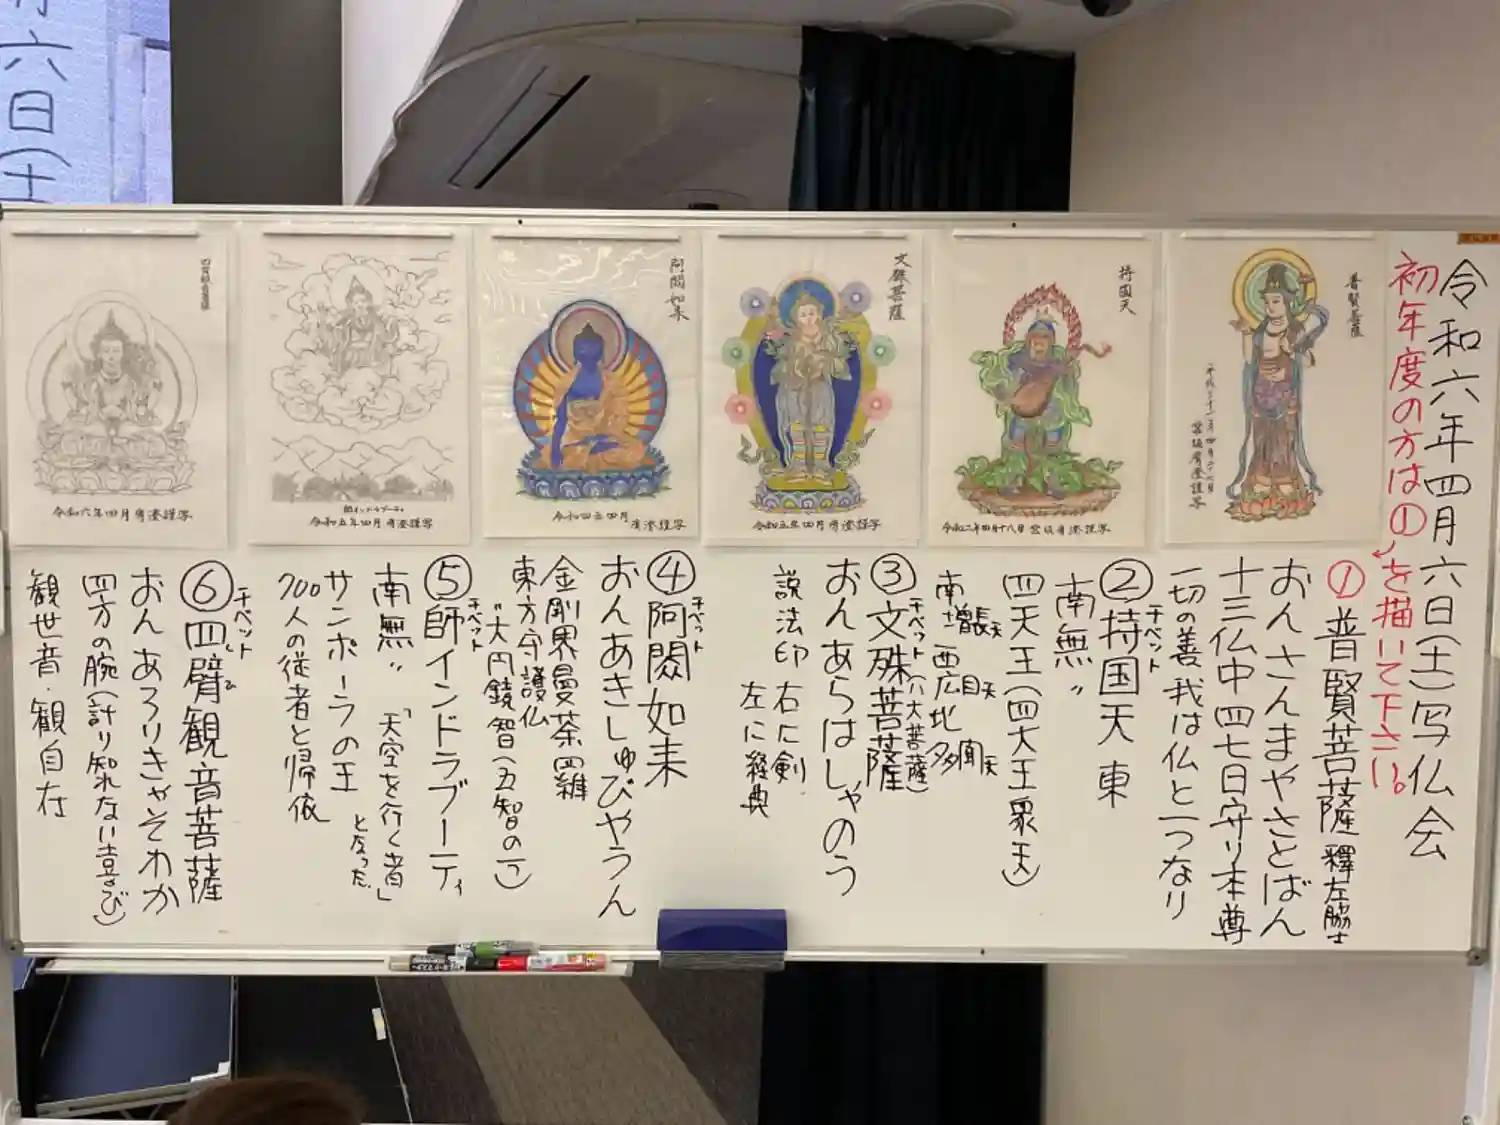 令和六年四月六日(土)写仏会
初年度の方は①を描いて下さい。
①普賢菩薩 釋左脇士
おんさんまやさとばん
十三仏中四七日守り本尊
一切の善我は仏と一つなり
②持国天 東
チベット
南無〃
四天王(四大王衆天)
南増長天 西広目天
北多聞天
③文殊菩薩(八大菩薩)
チベット
おんあらはしゃのう
説法印 右に剣
左に経典
④阿閦如来
チベット
おんあきしゅびやうん
金剛界曼荼羅
東方守護仏
〃大円鏡智(五智の一)
⑤師インドラブーティ
チベット
南無〃 「天空を行く者」
となった
サンポーラの王
700人の従者と帰依
⑥四臂観音菩薩
チベット
ひ
おんあろりきゃそわか
四方の腕(計り知れない喜び)
観世音・観自在
普賢菩薩
持国天
令和二年四月十八日
文殊菩薩
令和五年四月 謹写
阿閦如来
令和四年四月
謹写
師インドラブーティ
令和五年四月 謹写
四臂観音菩薩
令和六年四月 謹写
六日(土